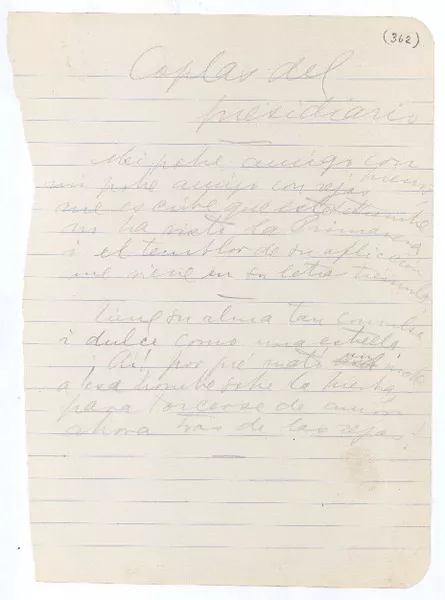 (362)
Coplas del
presidiario
Mi pobre amigo con
mi pobre amigo con rejas
me escribe que
no ha visto la Primavera
i el temblor de su aflicción
me viene en su letra
Tiene su alma tan
i dulce como una estrella
¡Ai! por qué mató
a ese hombre sobre la hierba,
para torcerse de
ahora tras de las rejas!